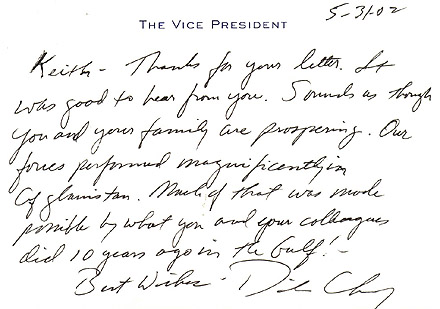 5-31-02
THE VICE PRESIDENT
Keith - Thanks for your letter. It
was good to hear from you. Sounds as though
you and your family are prospering. Our
forces performed magnificently in
Afghanistan. Much of that was made
possible by what you and your colleagues
did 10 years ago in the Gulf! -
Best Wishes - Dick Cheney